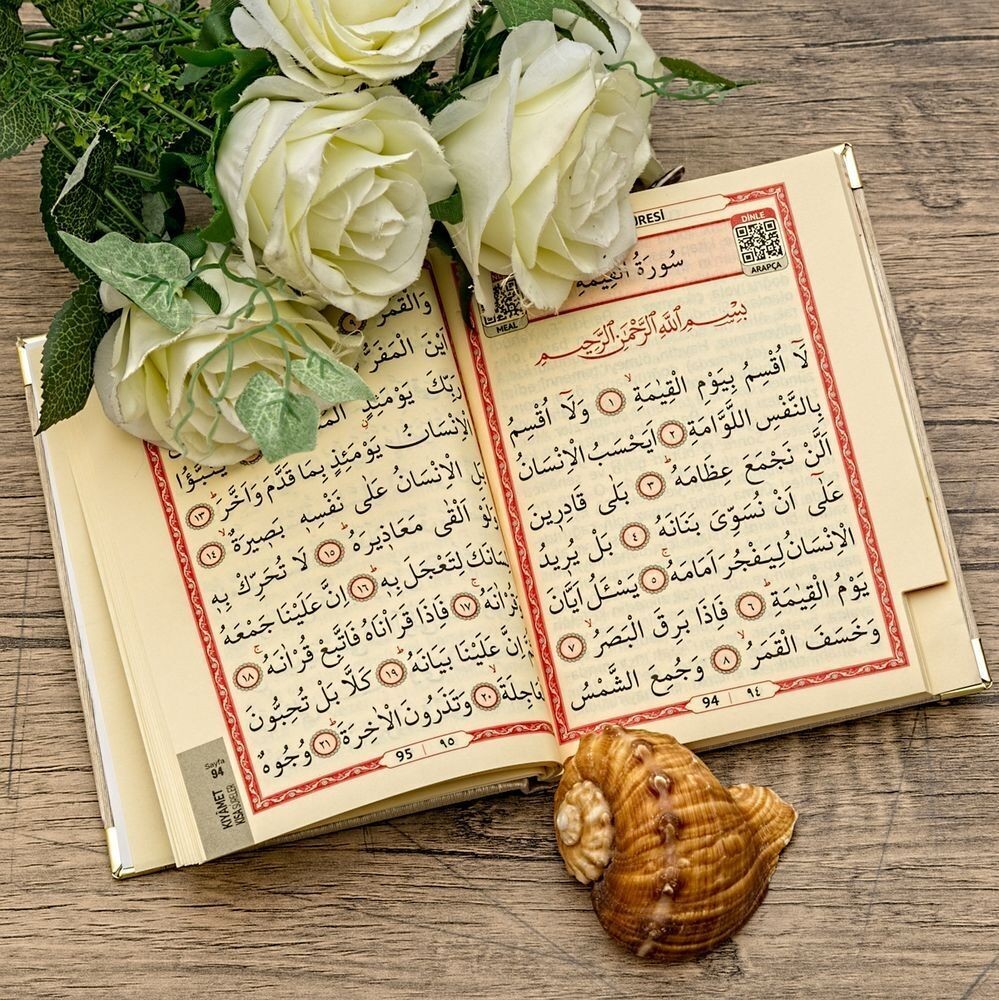 DİNLE
ARAPÇA
سُورَةُ الْقِيٰمَةِ
MEAL
بِسْمِ اللّٰهِ الرَّحْمٰنِ الرَّحِيمِ
لَٓا اُقْسِمُ بِيَوْمِ الْقِيٰمَةِۙ ١ وَلَٓا اُقْسِمُ
بِالنَّفْسِ اللَّوَّامَةِ ٢ اَيَحْسَبُ الْاِنْسَانُ
اَلَّنْ نَجْمَعَ عِظَامَهُۜ ٣ بَلٰى قَادِرِينَ
عَلٰٓى اَنْ نُسَوِّيَ بَنَانَهُ ٤ بَلْ يُرِيدُ
الْاِنْسَانُ لِيَفْجُرَ اَمَامَهُۚ ٥ يَسْـَٔلُ اَيَّانَ
يَوْمُ الْقِيٰمَةِۜ ٦ فَاِذَا بَرِقَ الْبَصَرُۙ ٧
وَخَسَفَ الْقَمَرُۙ ٨ وَجُمِعَ الشَّمْسُ
94 | ٩٤
وَالْقَمَرُ
اَيْنَ الْمَفَرُّ
رَبِّكَ يَوْمَئِذٍ يُنَبَّؤُا
الْاِنْسَانُ يَوْمَئِذٍ بِمَا قَدَّمَ وَاَخَّرَۜ ١٣
بَلِ الْاِنْسَانُ عَلٰى نَفْسِهٖ بَصٖيرَةٌۙ ١٤
وَلَوْ اَلْقٰى مَعَاذٖيرَهُۜ ١٥ لَا تُحَرِّكْ بِهٖ
لِسَانَكَ لِتَعْجَلَ بِهٖۜ ١٦ اِنَّ عَلَيْنَا جَمْعَهُ
وَقُرْاٰنَهُۚ ١٧ فَاِذَا قَرَأْنَاهُ فَاتَّبِعْ قُرْاٰنَهُۚ ١٨
ثُمَّ اِنَّ عَلَيْنَا بَيَانَهُۜ ١٩ كَلَّا بَلْ تُحِبُّونَ
الْعَاجِلَةَۙ ٢٠ وَتَذَرُونَ الْاٰخِرَةَۜ ٢١ وُجُوهٌ
95 | ٩٥
Sayfa
94
KIYAMET
KISA SURELER